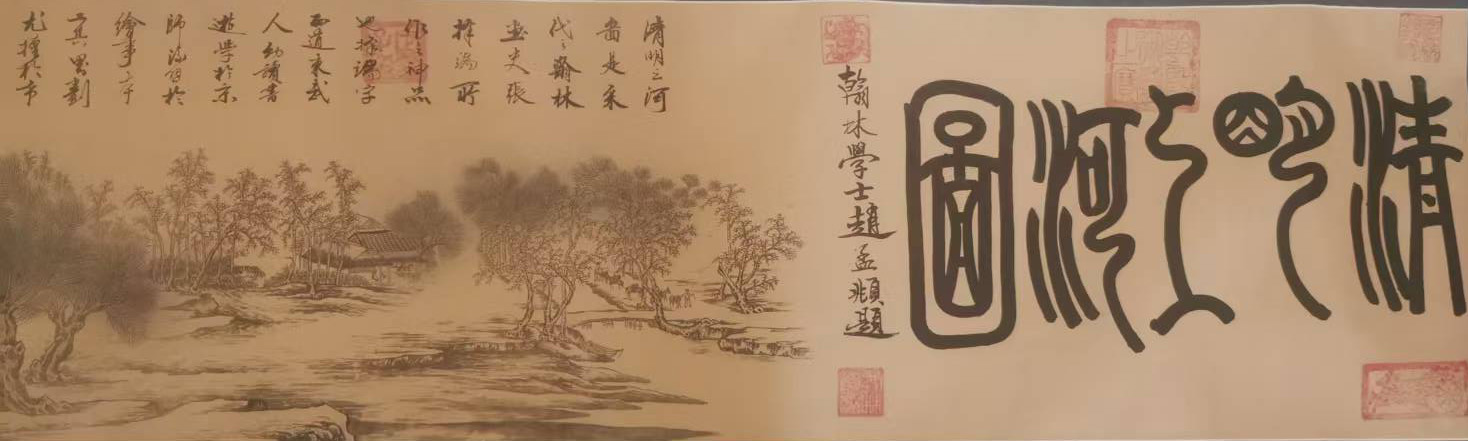 清明上河圖
翰林學士趙孟頫題
清明上河
啚是宋
代之翰林
畫史張
擇端所
作之神品
也擇端字
正道東武
人幼讀書
遊學於京
師後習於
繪事工于
其界劃
尤擅於市